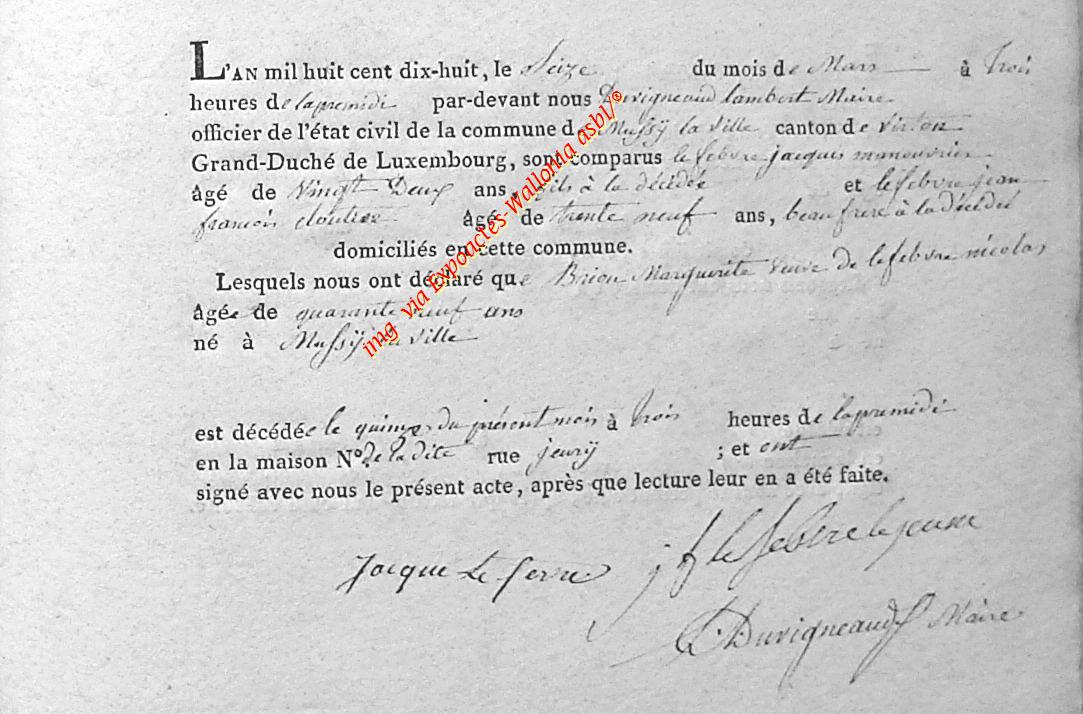 L'AN mil huit cent dix-huit, le Seize du mois de Mars à trois
heures de lapremidi par-devant nous Duvigneaud lambert Maire
officier de l'état civil de la commune de Mussÿ la ville canton de virton
Grand-Duché de Luxembourg, sont comparus lefebvre jacques manouvrier
âgé de vingt Deux ans, fils à la décédée et lefebvre jean
francois cloutier âgé de trente neuf ans, beau frere à la décédée
domiciliés en cette commune.
Lesquels nous ont déclaré que Brion Marguerite veuve de lefebvre nicolas
âgée de quarante neuf ans
né à Mussÿ la ville
est décédée le quinze du présent mois à trois heures de lapremidi
en la maison N° de la dite rue jeurÿ ; et ont
signé avec nous le présent acte, après que lecture leur en a été faite.
Jacque Le fevre jf le febvre le jeune
L Duvigneaud Maire
img via Expoactes-Wallonia asbl/®